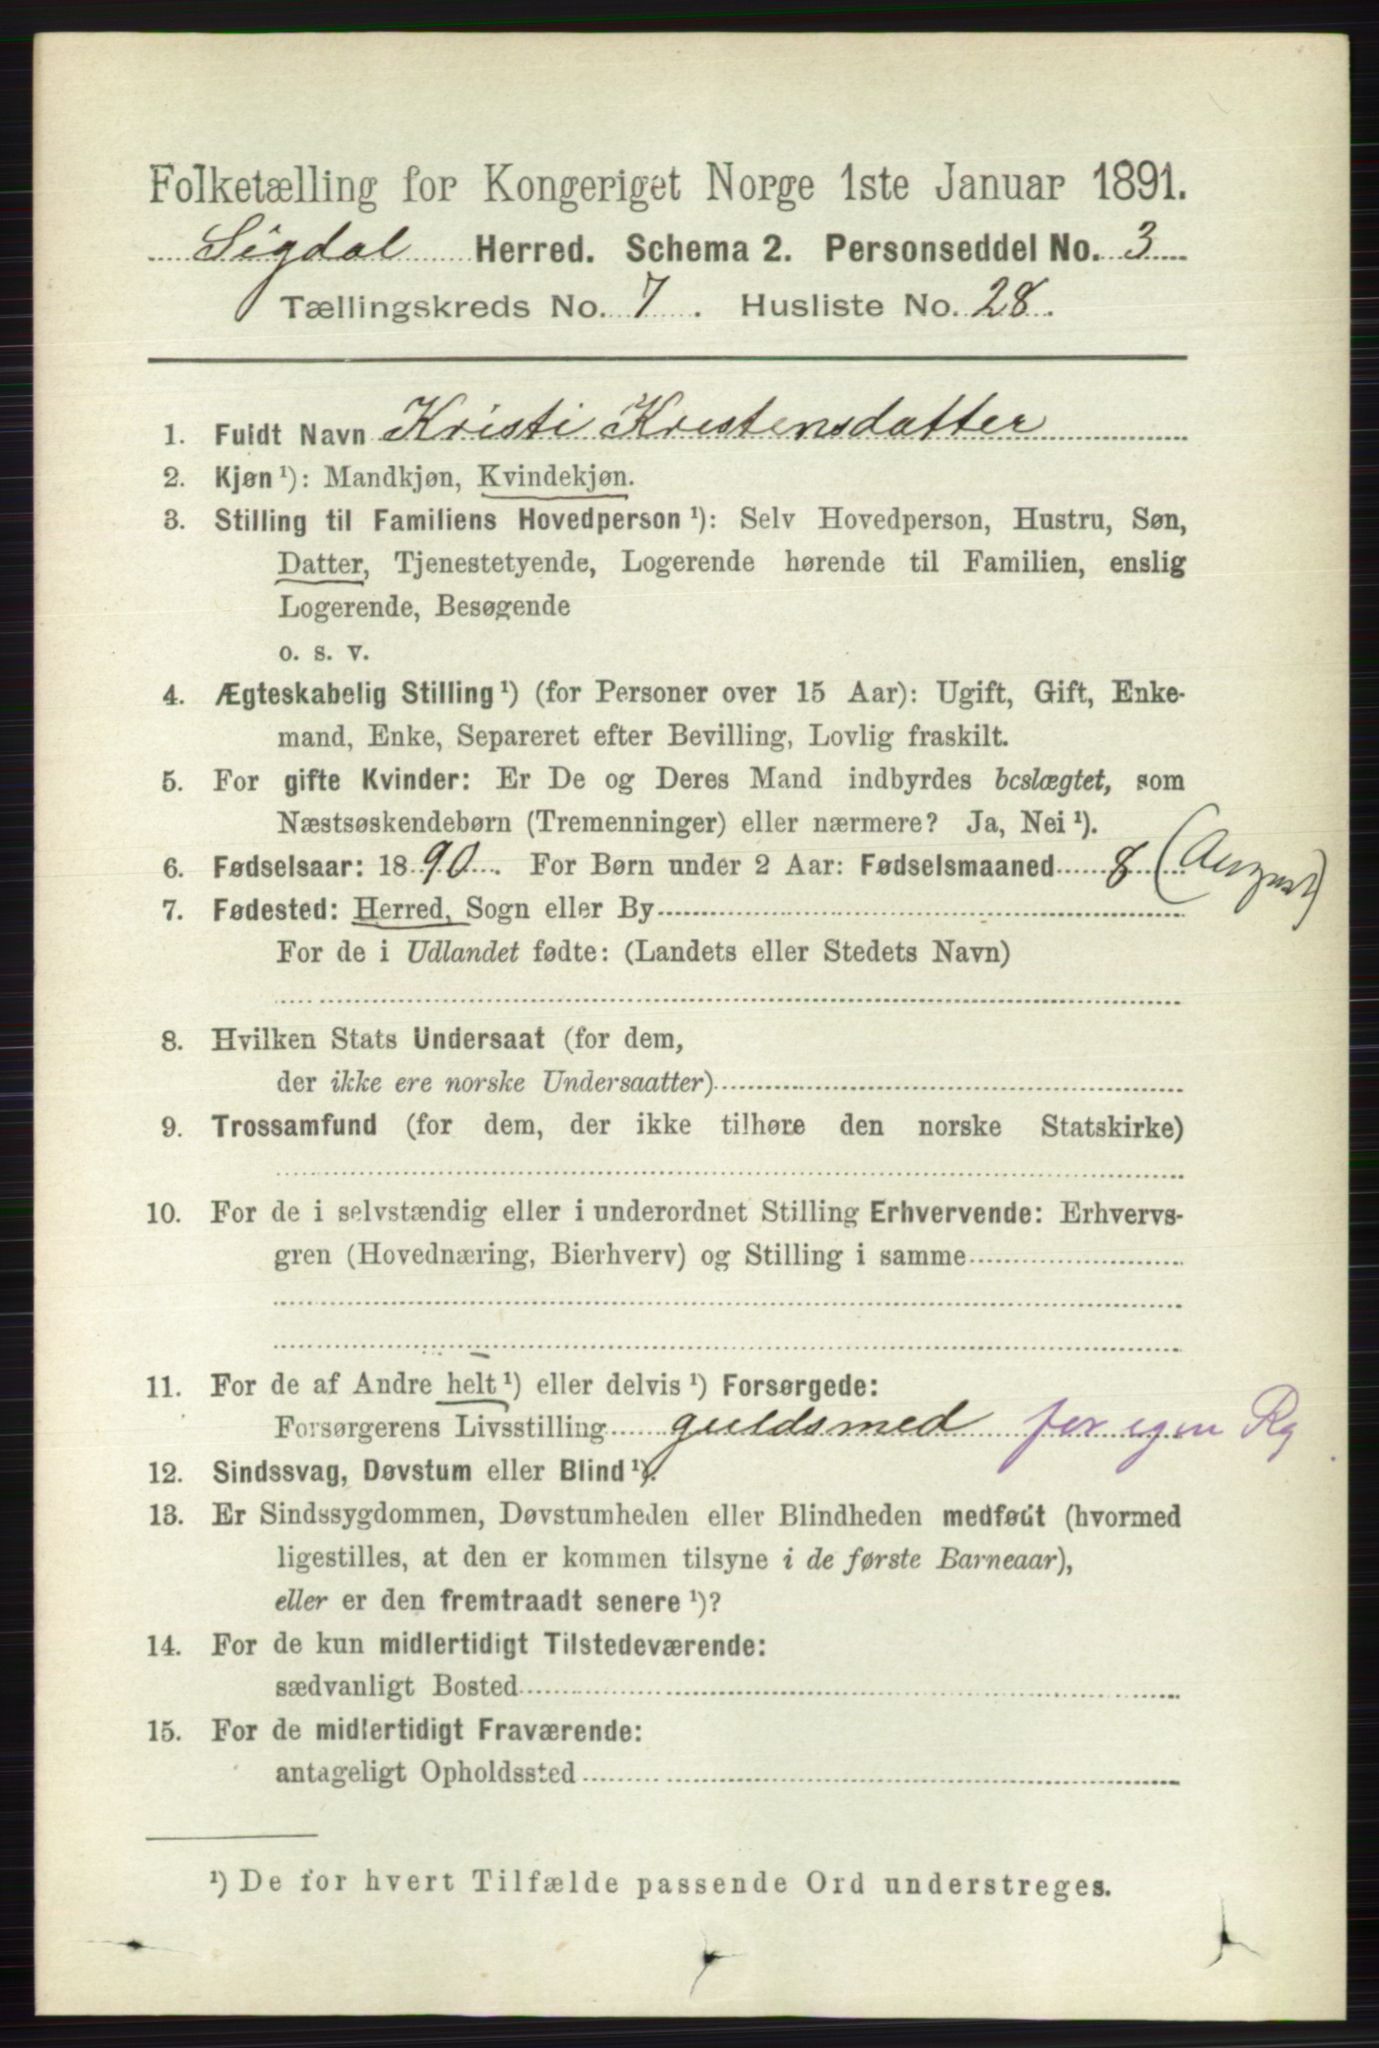 Folketælling for Kongeriget Norge 1ste Januar 1891.
Sigdal Herred. Schema 2. Personseddel No. 3
Tællingskreds No. 7. Husliste No. 28.
1. Fuldt Navn Kristi Kristensdatter
2. Kjøn ¹): Mandkjøn, Kvindekjøn.
3. Stilling til Familiens Hovedperson ¹): Selv Hovedperson, Hustru, Søn,
Datter, Tjenestetyende, Logerende hørende til Familien, enslig
Logerende, Besøgende
o. s. v.
4. Ægteskabelig Stilling ¹) (for Personer over 15 Aar): Ugift, Gift, Enke-
mand, Enke, Separeret efter Bevilling, Lovlig fraskilt.
5. For gifte Kvinder: Er De og Deres Mand indbyrdes beslægtet, som
Næstsøskendebørn (Tremenninger) eller nærmere? Ja, Nei ¹).
6. Fødselsaar: 1890. For Børn under 2 Aar: Fødselsmaaned 8 (August)
7. Fødested: Herred, Sogn eller By
For de i Udlandet fødte: (Landets eller Stedets Navn)
8. Hvilken Stats Undersaat (for dem,
der ikke ere norske Undersaatter)
9. Trossamfund (for dem, der ikke tilhøre den norske Statskirke)
10. For de i selvstændig eller i underordnet Stilling Erhvervende: Erhvervs-
gren (Hovednæring, Bierhverv) og Stilling i samme
11. For de af Andre helt ¹) eller delvis ¹) Forsørgede:
Forsørgerens Livsstilling guldsmed for egen Rg
12. Sindssvag, Døvstum eller Blind ¹).
13. Er Sindssygdommen, Døvstumheden eller Blindheden medfødt (hvormed
ligestilles, at den er kommen tilsyne i de første Barneaar),
eller er den fremtraadt senere ¹)?
14. For de kun midlertidigt Tilstedeværende:
sædvanligt Bosted
15. For de midlertidigt Fraværende:
antageligt Opholdssted
¹) De for hvert Tilfælde passende Ord understreges.